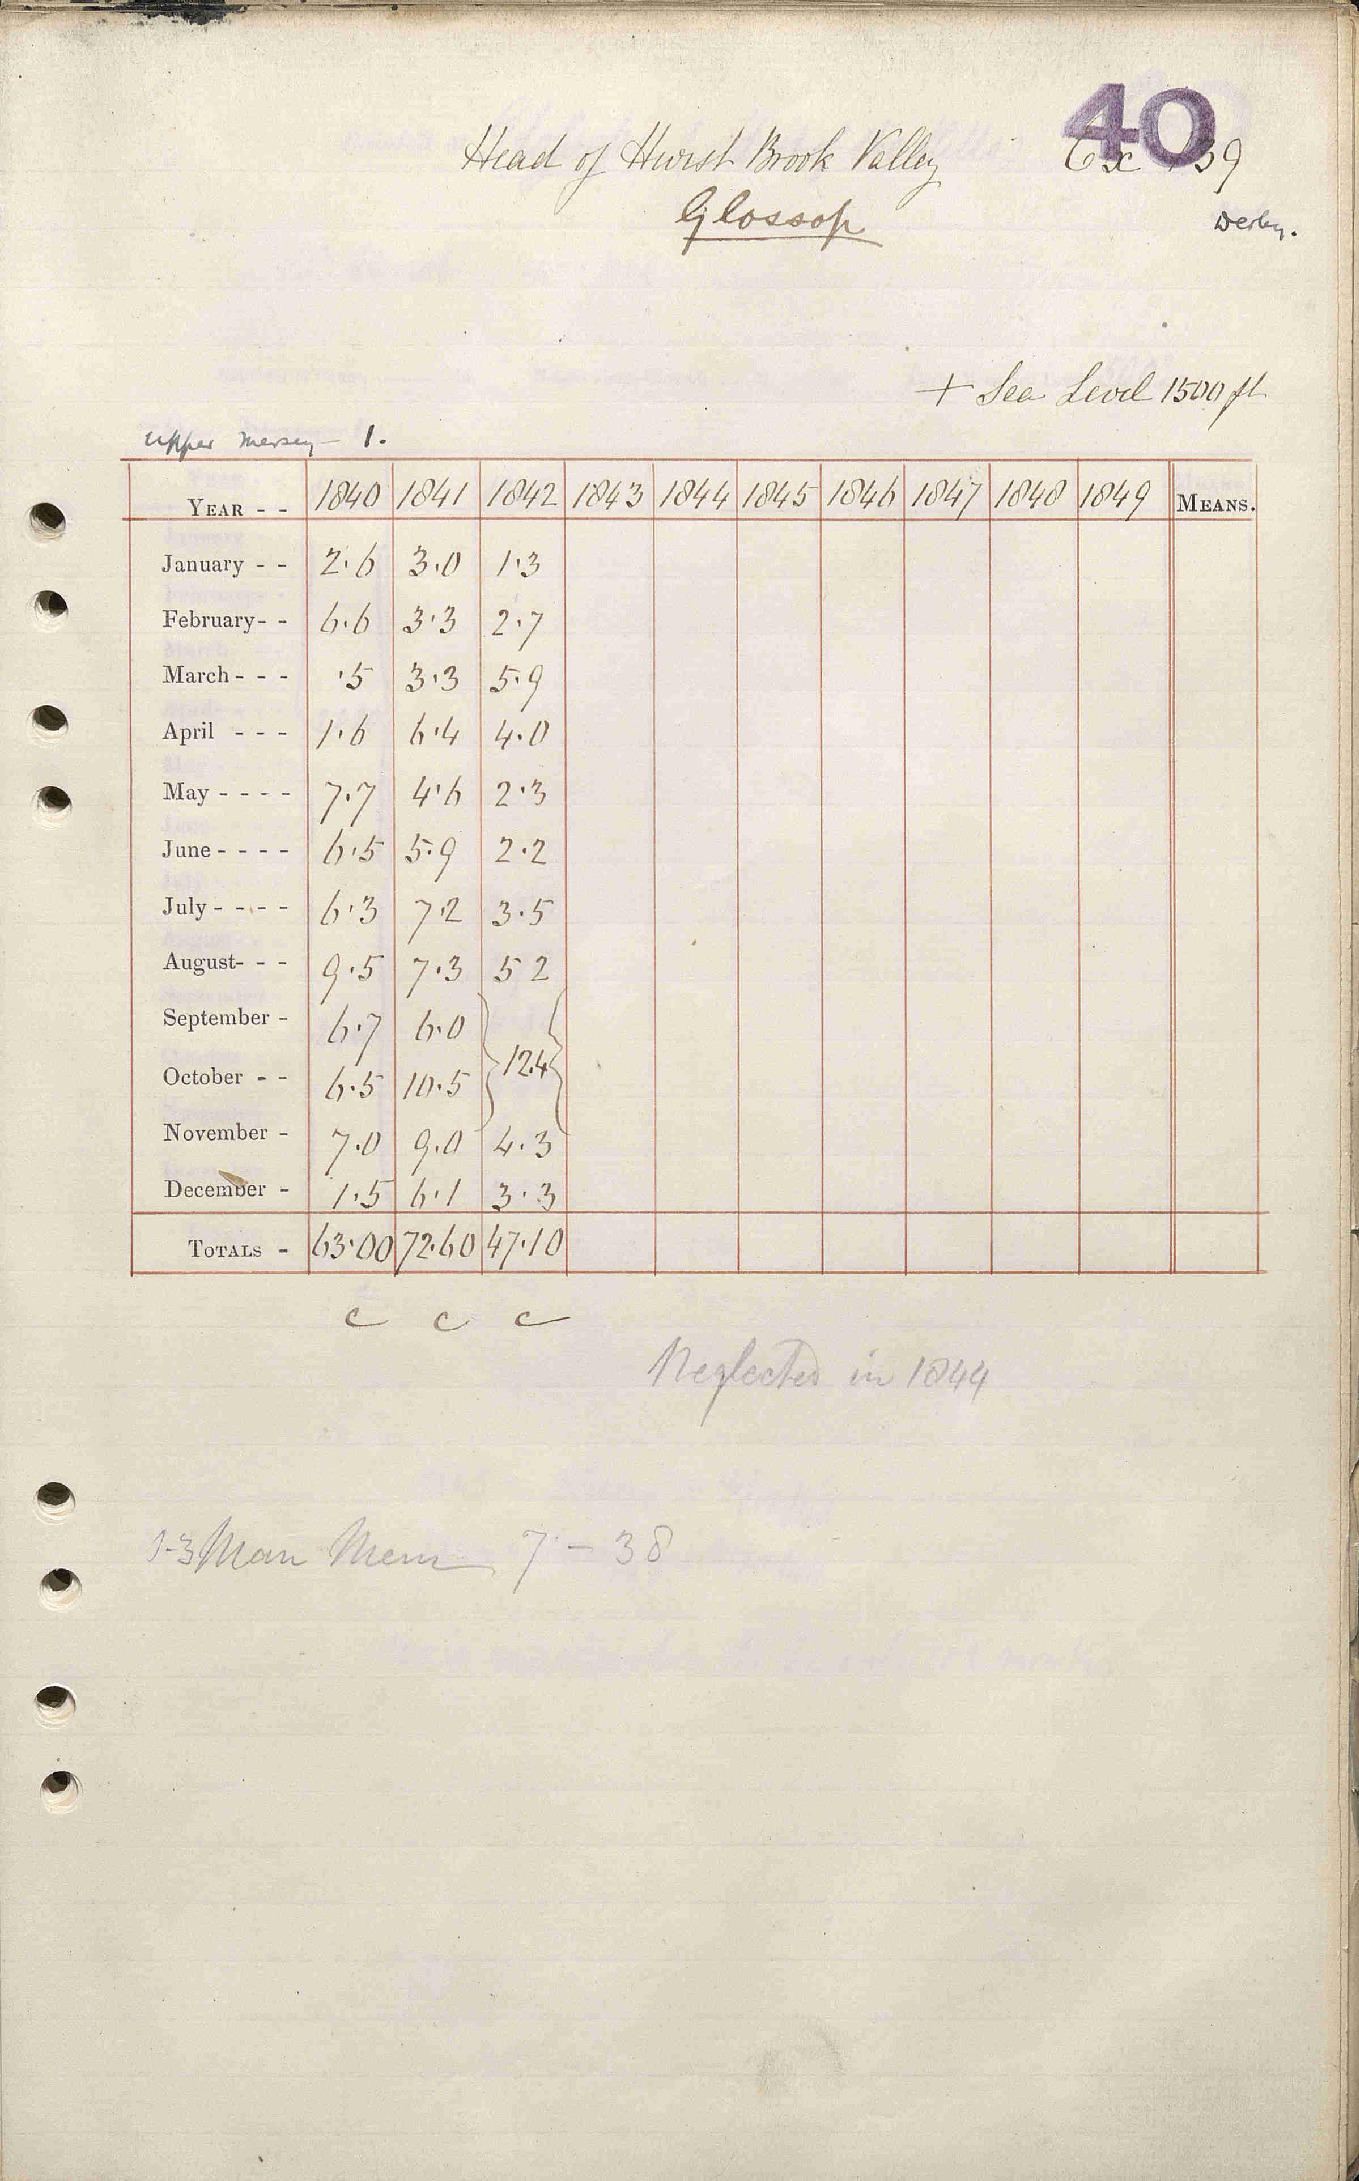 40
Head of Hurst Brook Valley 39
Glossop Derby.
+ Sea Level 1500 ft
Upper Mersey - 1.
YEAR - - 1840 1841 1842 1843 1844 1845 1846 1847 1848 1849 MEANS.
January - - 2.6 3.0 1.3
February- - 6.6 3.3 2.7
March - - - .5 3.3 5.9
April - - - 1.6 6.4 4.0
May - - - - 7.7 4.6 2.3
June - - - - 6.5 5.9 2.2
July - - - - 6.3 7.2 3.5
August- - - 9.5 7.3 5 2
September - 6.7 6.0
12.4
October - - 6.5 10.5
November - 7.0 9.0 4.3
December - 1.5 6.1 3.3
TOTALS - 63.00 72.60 47.10
c c c
Neglected in 1844
1-3 Man Mem 7 - 38